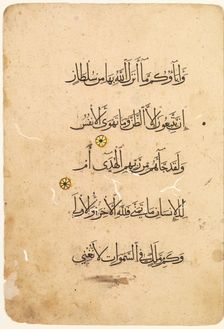 وَآبَاؤُكُم مَّا أَنزَلَ اللَّهُ بِهَا مِن سُلْطَانٍ
إِن يَتَّبِعُونَ إِلَّا الظَّنَّ وَمَا تَهْوَى الْأَنفُسُ
وَلَقَدْ جَاءَهُم مِّن رَّبِّهِمُ الْهُدَى أَمْ
لِلْإِنسَانِ مَا تَمَنَّى فَلِلَّهِ الْآخِرَةُ وَالْأُولَى
وَكَم مِّن مَّلَكٍ فِي السَّمَوَاتِ لَا تُغْنِي